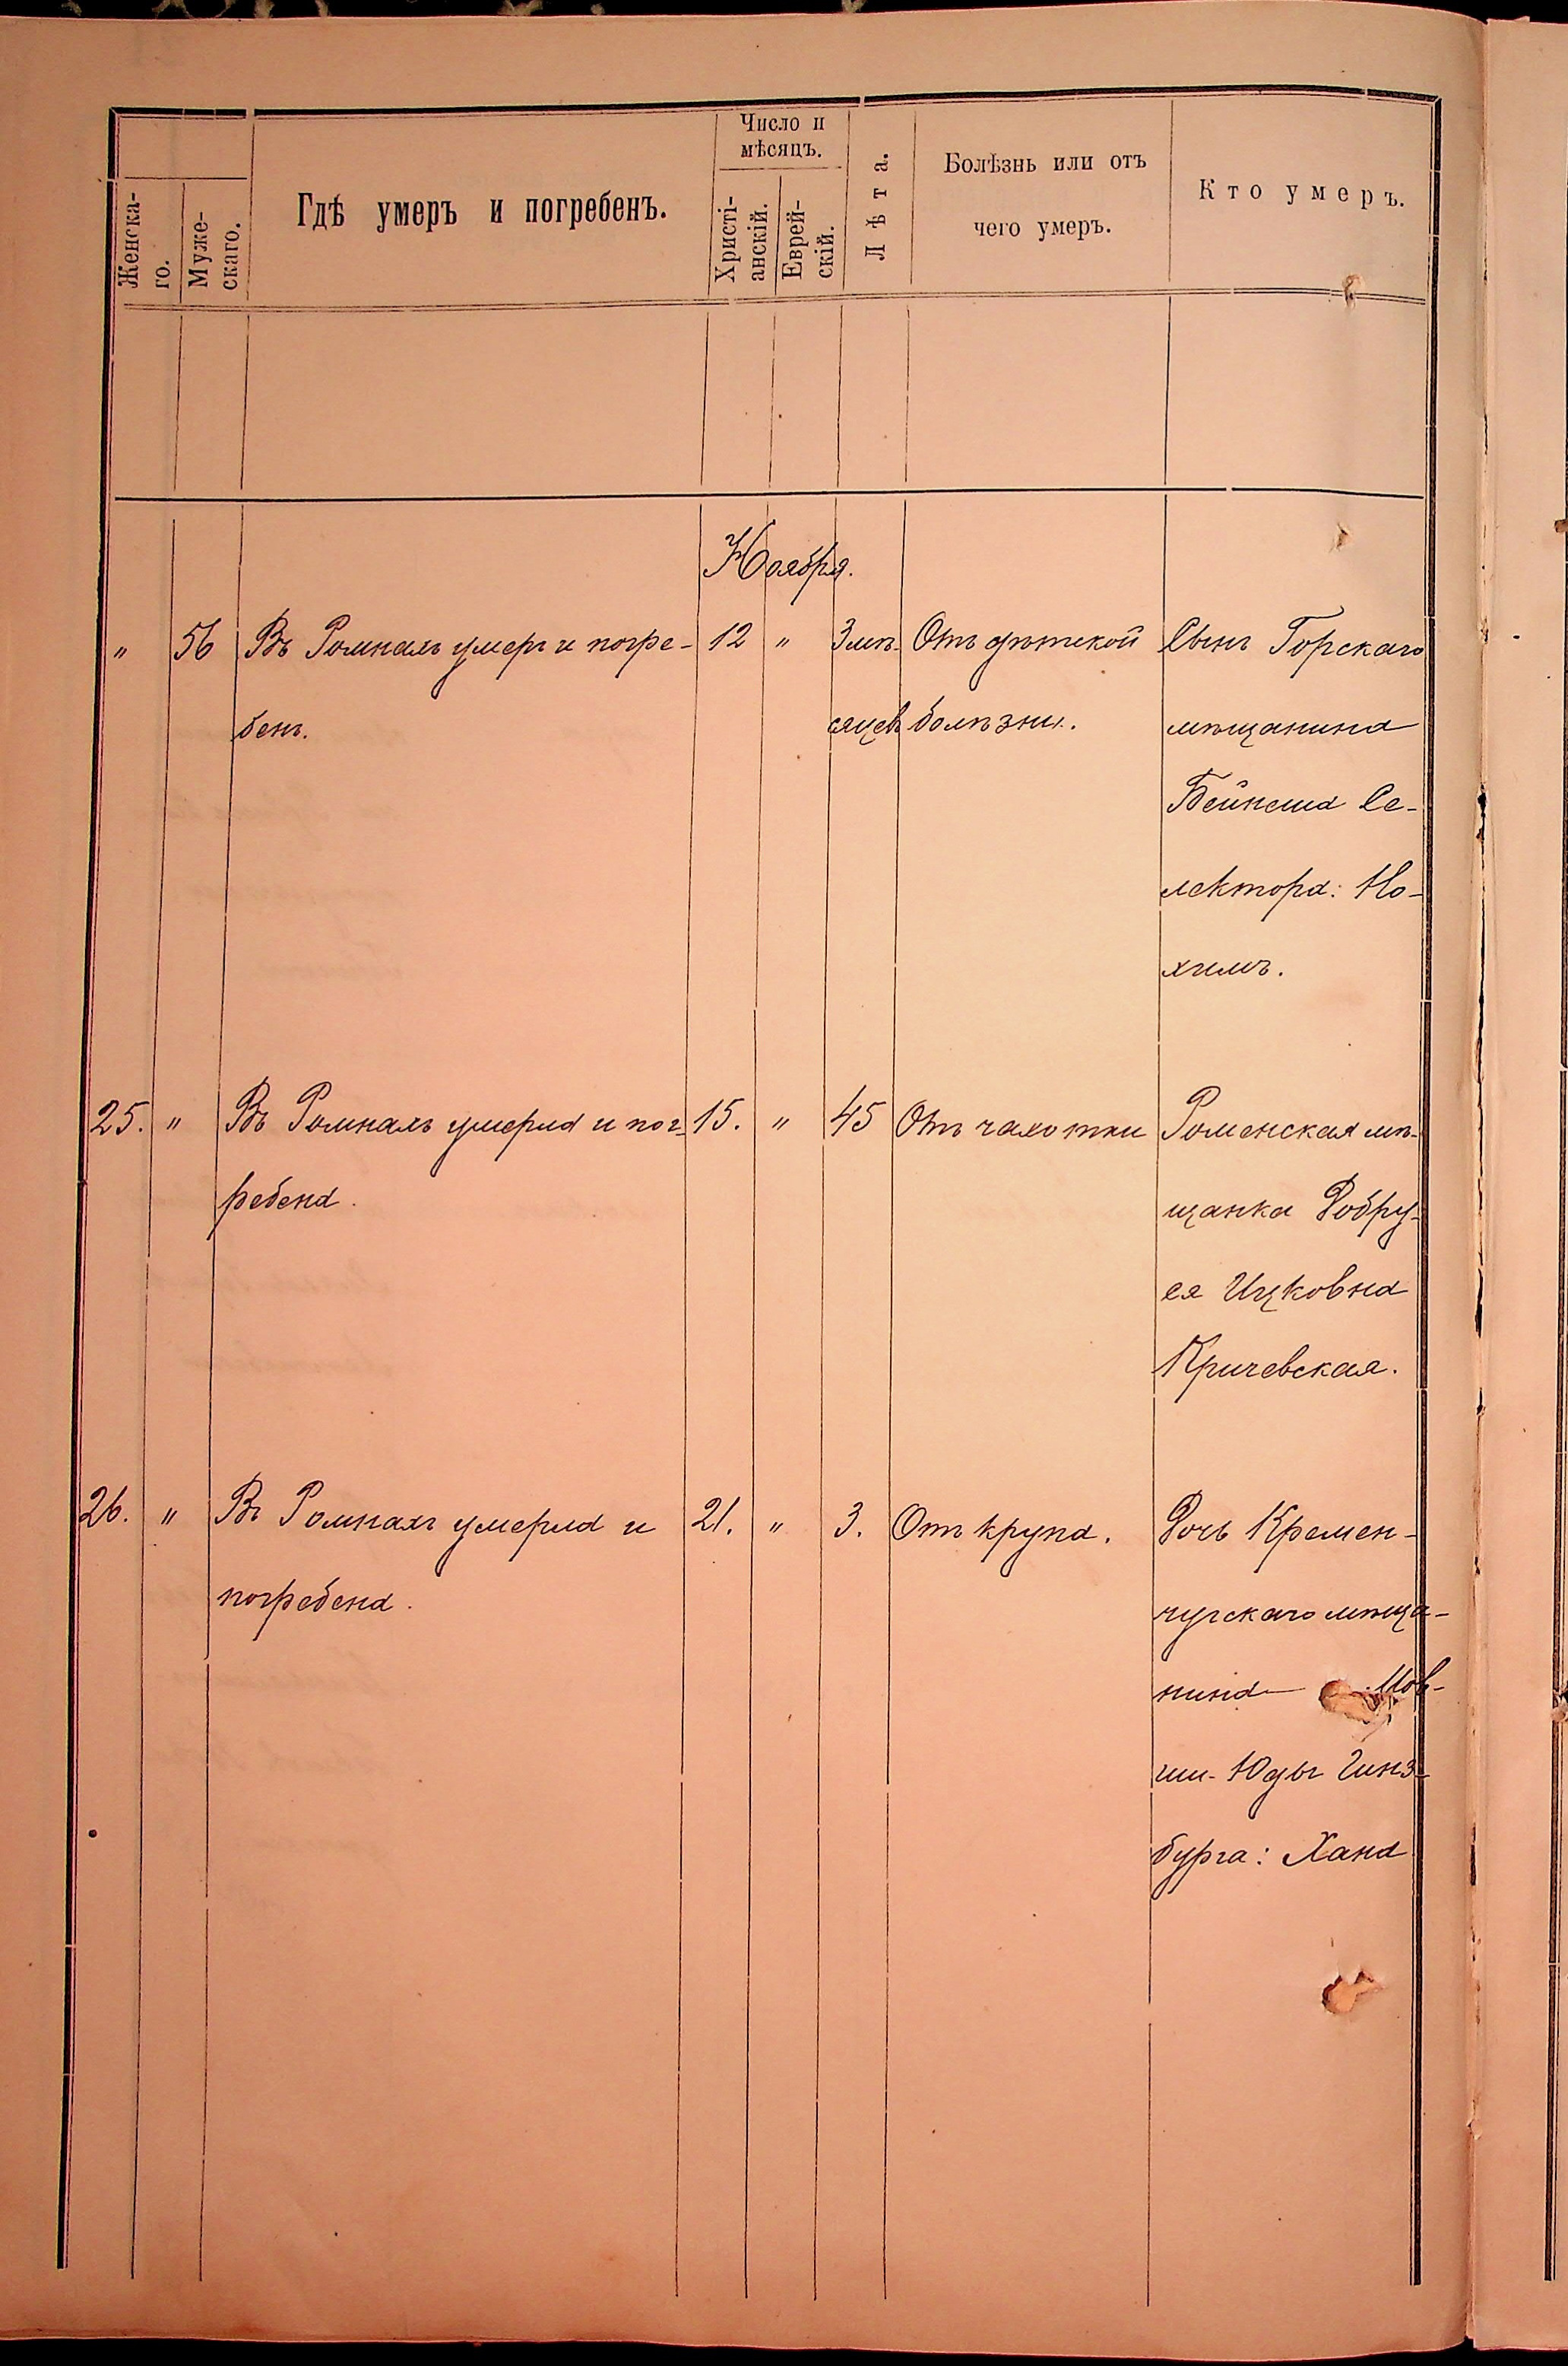 Женска-
го.
Муже-
скаго.
Гдѣ умеръ и погребенъ.
Число и
мѣсяцъ.
Христі-
анскій.
Еврей-
скій.
Лѣта.
Болѣзнь или отъ
чего умеръ.
Кто умеръ.
Ноября.
" 56 Въ Ромнахъ умеръ и погре- 12 " 3 мѣ- Отъ дѣтской Сынъ Горскаго
бенъ. сяцевъ болѣзни. мѣщанина
Бейнеша Се-
лектора: Но-
химъ.
25. " Въ Ромнахъ умерла и пог- 15. " 45 Отъ чахотки Роменская мѣ-
ребена. щанка Добру-
ся Ицковна
Кричевская.
26. " Въ Ромнахъ умерла и 21. " 3. Отъ крупа. Дочь Кремен-
погребена. чугскаго мѣща-
нина — Мов-
ши-Юды Гинз-
бурга: Хана